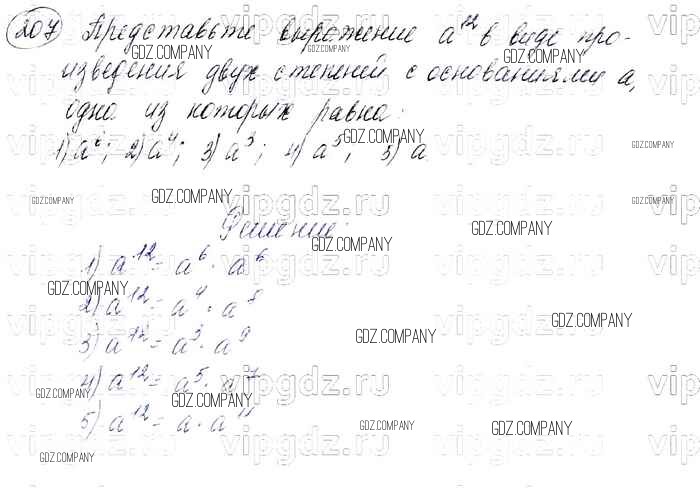 207 Представьте выражение a¹² в виде про-
изведения двух степеней с основаниями a,
одна из которых равна:
1) a⁶; 2) a⁴; 3) a³; 4) a⁵; 5) a
Решение:
1) a¹² = a⁶ · a⁶
2) a¹² = a⁴ · a⁸
3) a¹² = a³ · a⁹
4) a¹² = a⁵ · a⁷
5) a¹² = a · a¹¹
GDZ.COMPANY
vipgdz.ru